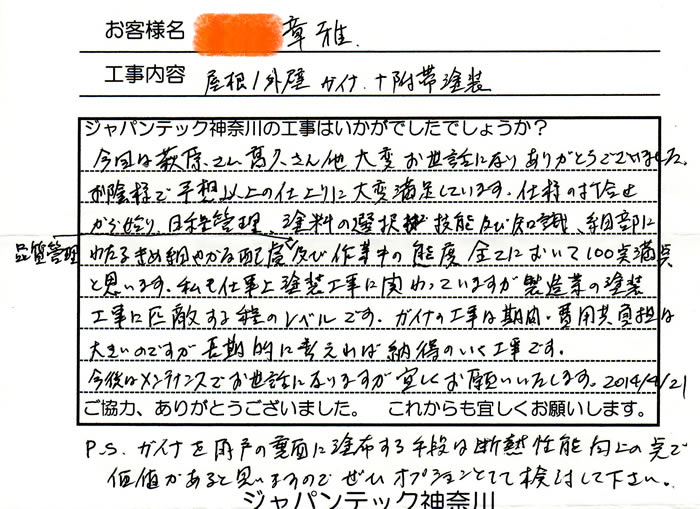 お客様名 章雅
工事内容 屋根/外壁 ガイナ.+附帯塗装
ジャパンテック神奈川の工事はいかがでしたでしょうか?
今回は萩原さん髙久さん他大変お世話になりありがとうございました。
お陰様で予想以上の仕上りに大変満足しています。仕様の打合せ
から始り、日程管理、塗料の選択 技能及び知識、細部に
品質管理
わたるきめ細やかな配慮及び作業中の態度全てにおいて100点満点
と思います。私も仕事上塗装工事に関わっていますが製造業の塗装
工事に匹敵する程のレベルです。ガイナの工事は期間・費用共負担は
大きいのですが長期的に考えれば納得のいく工事です。
今後はメンテナンスでお世話になりますが宜しくお願いいたします。2014/4/21
ご協力、ありがとうございました。 これからも宜しくお願いします。
P.S. ガイナを雨戸の裏面に塗布する手段は断熱性能向上の点で
価値があると思いますのでぜひオプションとして検討して下さい。
ジャパンテック神奈川